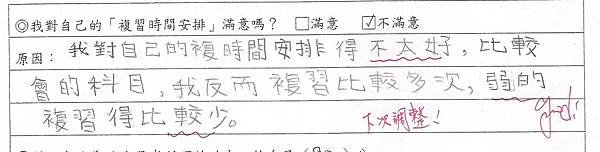 ◎我對自己的「複習時間安排」滿意嗎？ □滿意 ☑不滿意
原因：我對自己的複時間安排得不太好，比較
會的科目，我反而複習比較多次，弱的
複習得比較少。 下次調整！ good!